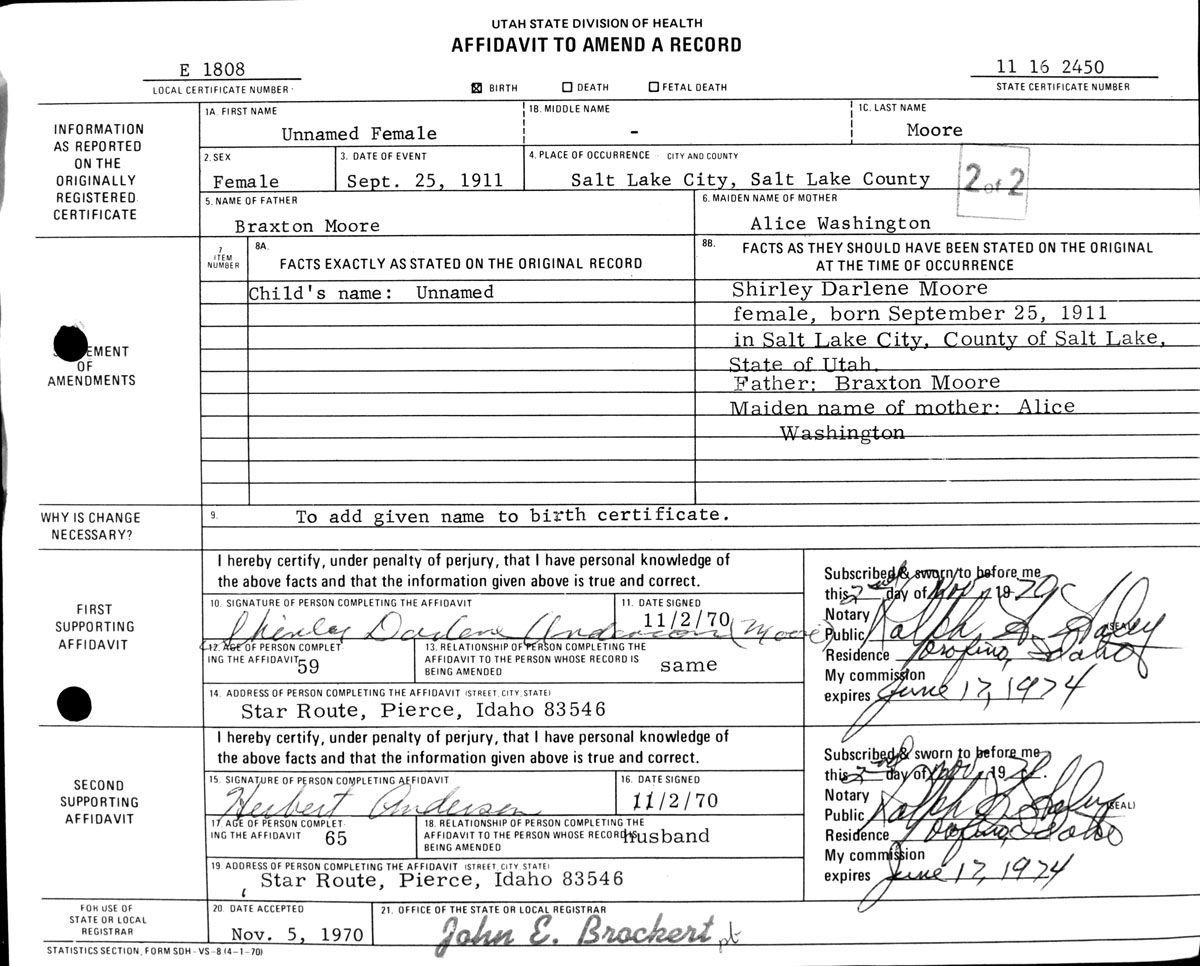 UTAH STATE DIVISION OF HEALTH
AFFIDAVIT TO AMEND A RECORD
E 1808
LOCAL CERTIFICATE NUMBER
☒ BIRTH ☐ DEATH ☐ FETAL DEATH
11 16 2450
STATE CERTIFICATE NUMBER
INFORMATION
AS REPORTED
ON THE
ORIGINALLY
REGISTERED
CERTIFICATE
1A. FIRST NAME
Unnamed Female
1B. MIDDLE NAME
-
1C. LAST NAME
Moore
2. SEX
Female
3. DATE OF EVENT
Sept. 25, 1911
4. PLACE OF OCCURRENCE CITY AND COUNTY
Salt Lake City, Salt Lake County
2 of 2
5. NAME OF FATHER
Braxton Moore
6. MAIDEN NAME OF MOTHER
Alice Washington
EMENT
OF
AMENDMENTS
7
ITEM
NUMBER
8A.
FACTS EXACTLY AS STATED ON THE ORIGINAL RECORD
8B. FACTS AS THEY SHOULD HAVE BEEN STATED ON THE ORIGINAL
AT THE TIME OF OCCURRENCE
Child's name: Unnamed
Shirley Darlene Moore
female, born September 25, 1911
in Salt Lake City, County of Salt Lake,
State of Utah.
Father: Braxton Moore
Maiden name of mother: Alice
Washington
WHY IS CHANGE
NECESSARY?
9. To add given name to birth certificate.
FIRST
SUPPORTING
AFFIDAVIT
I hereby certify, under penalty of perjury, that I have personal knowledge of
the above facts and that the information given above is true and correct.
10. SIGNATURE OF PERSON COMPLETING THE AFFIDAVIT
Shirley Darlene Anderson (Moore)
11. DATE SIGNED
11/2/70
12. AGE OF PERSON COMPLET-
ING THE AFFIDAVIT 59
13. RELATIONSHIP OF PERSON COMPLETING THE
AFFIDAVIT TO THE PERSON WHOSE RECORD IS
BEING AMENDED
same
14. ADDRESS OF PERSON COMPLETING THE AFFIDAVIT (STREET, CITY, STATE)
Star Route, Pierce, Idaho 83546
Subscribed & sworn to before me
this 2nd day of Nov, 1970
Notary
Public Ralph (SEAL)
Residence Orofino, Idaho
My commission
expires June 17, 1974
SECOND
SUPPORTING
AFFIDAVIT
I hereby certify, under penalty of perjury, that I have personal knowledge of
the above facts and that the information given above is true and correct.
15. SIGNATURE OF PERSON COMPLETING AFFIDAVIT
Herbert Anderson
16. DATE SIGNED
11/2/70
17. AGE OF PERSON COMPLET-
ING THE AFFIDAVIT 65
18. RELATIONSHIP OF PERSON COMPLETING THE
AFFIDAVIT TO THE PERSON WHOSE RECORD IS
BEING AMENDED
husband
19. ADDRESS OF PERSON COMPLETING THE AFFIDAVIT (STREET, CITY, STATE)
Star Route, Pierce, Idaho 83546
Subscribed & sworn to before me
this 2nd day of Nov, 19
Notary
Public Ralph (SEAL)
Residence Orofino, Idaho
My commission
expires June 17, 1974
FOR USE OF
STATE OR LOCAL
REGISTRAR
20. DATE ACCEPTED
Nov. 5, 1970
21. OFFICE OF THE STATE OR LOCAL REGISTRAR
John E. Brockert pt
STATISTICS SECTION, FORM SDH - VS - 8 (4-1-70)